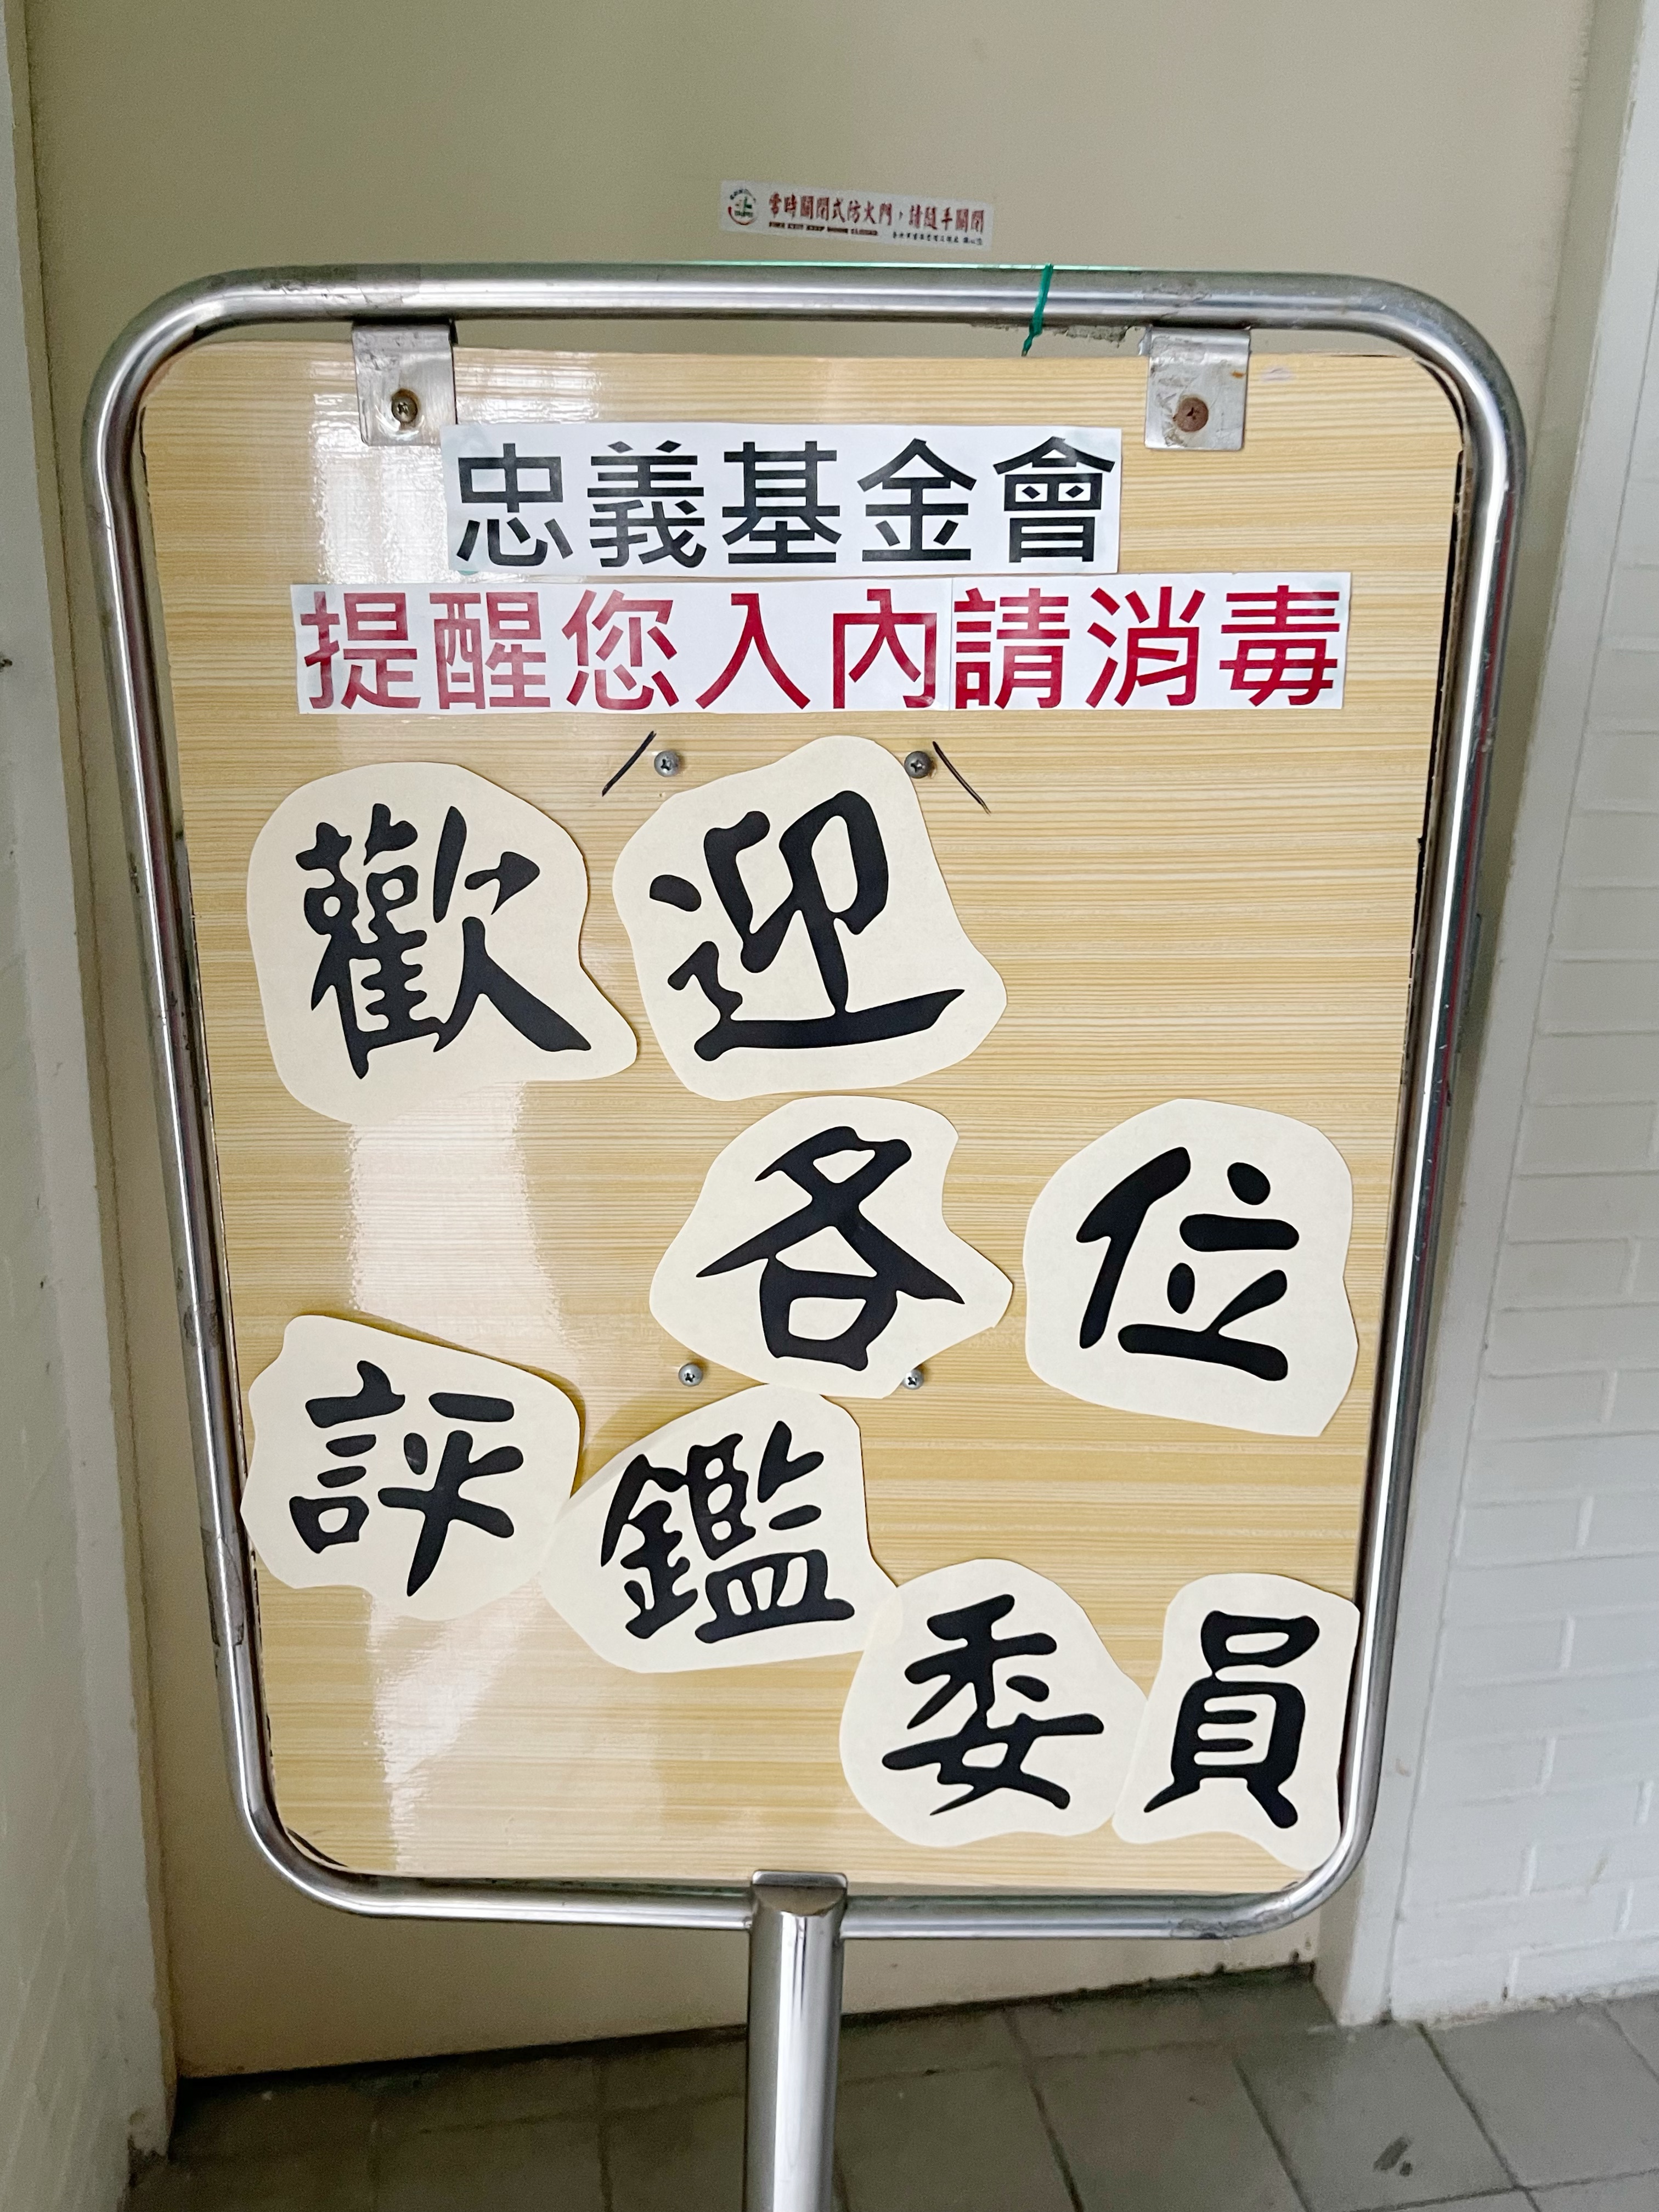 常時關閉式防火門，請隨手關閉
忠義基金會
提醒您入內請消毒
歡迎
各位
評鑑
委員